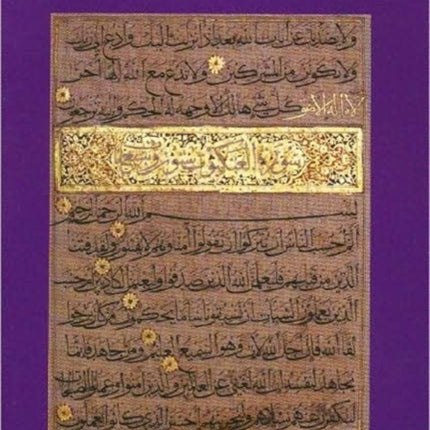 ولا يصدنك عن ايات الله بعد اذ انزلت اليك وادع الى ربك
ولا تكونن من المشركين ولا تدع مع الله الها اخر
لا اله الا هو كل شيء هالك الا وجهه له الحكم واليه ترجعون
سورة العنكبوت
بسم الله الرحمن الرحيم
الم احسب الناس ان يتركوا ان يقولوا امنا وهم لا يفتنون ولقد فتنا
الذين من قبلهم فليعلمن الله الذين صدقوا وليعلمن الكاذبين ام حسب
الذين يعملون السيئات ان يسبقونا ساء ما يحكمون من كان يرجو
لقاء الله فان اجل الله لات وهو السميع العليم ومن جاهد فانما
يجاهد لنفسه ان الله لغني عن العالمين والذين امنوا وعملوا الصالحات
لنكفرن عنهم سيئاتهم ولنجزينهم احسن الذي كانوا يعملون